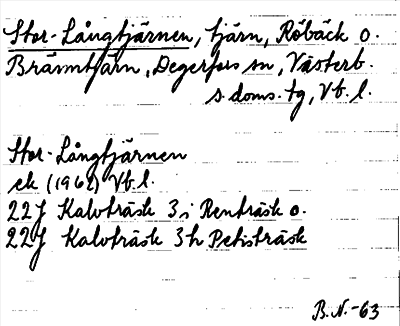 Stor-Långtjärnen, tjärn, Röbäck o.
Brännträrn, Degerfors sn, Västerb.
s. doms. tg, Vb. l.
Stor-Långtjärnen
ek (1962) Vb. l.
22J Kalvträsk 3i Renträsk o.
22J Kalvträsk 3h Petisträsk
B.N.-63